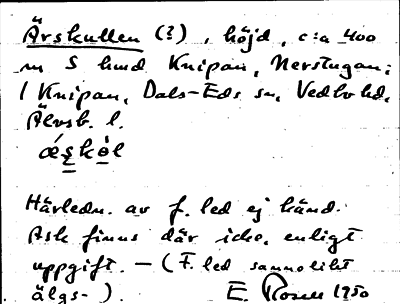 Ärskullen (?), höjd, c:a 400
m S hmd Knipan, Nerstugan;
i Knipan, Dals-Eds sn, Vedbo hd,
Älvsb. l.
æ̀s̱kò̱l
Härledn. av f. led ej känd.
Ask finns där icke, enligt
uppgift. — (F. led sannolikt
älgs-). E. Rosell 1950